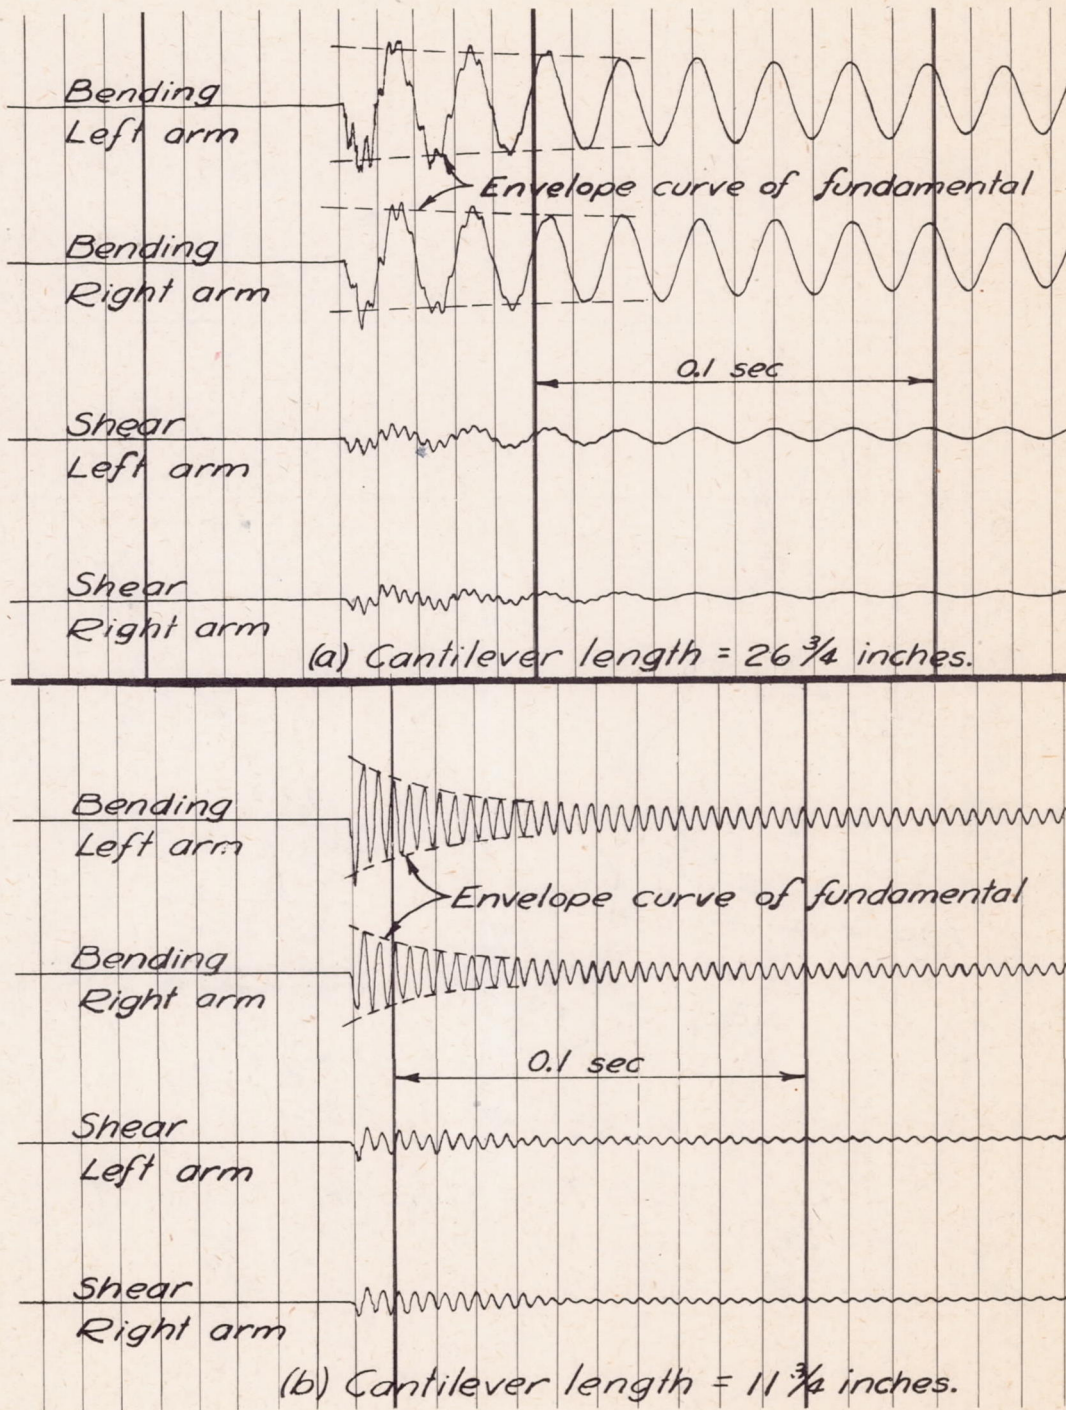 Bending
Left arm
Envelope curve of fundamental
Bending
Right arm
0.1 sec
Shear
Left arm
Shear
Right arm
(a) Cantilever length = 26 3/4 inches.
Bending
Left arm
Envelope curve of fundamental
Bending
Right arm
0.1 sec
Shear
Left arm
Shear
Right arm
(b) Cantilever length = 11 3/4 inches.